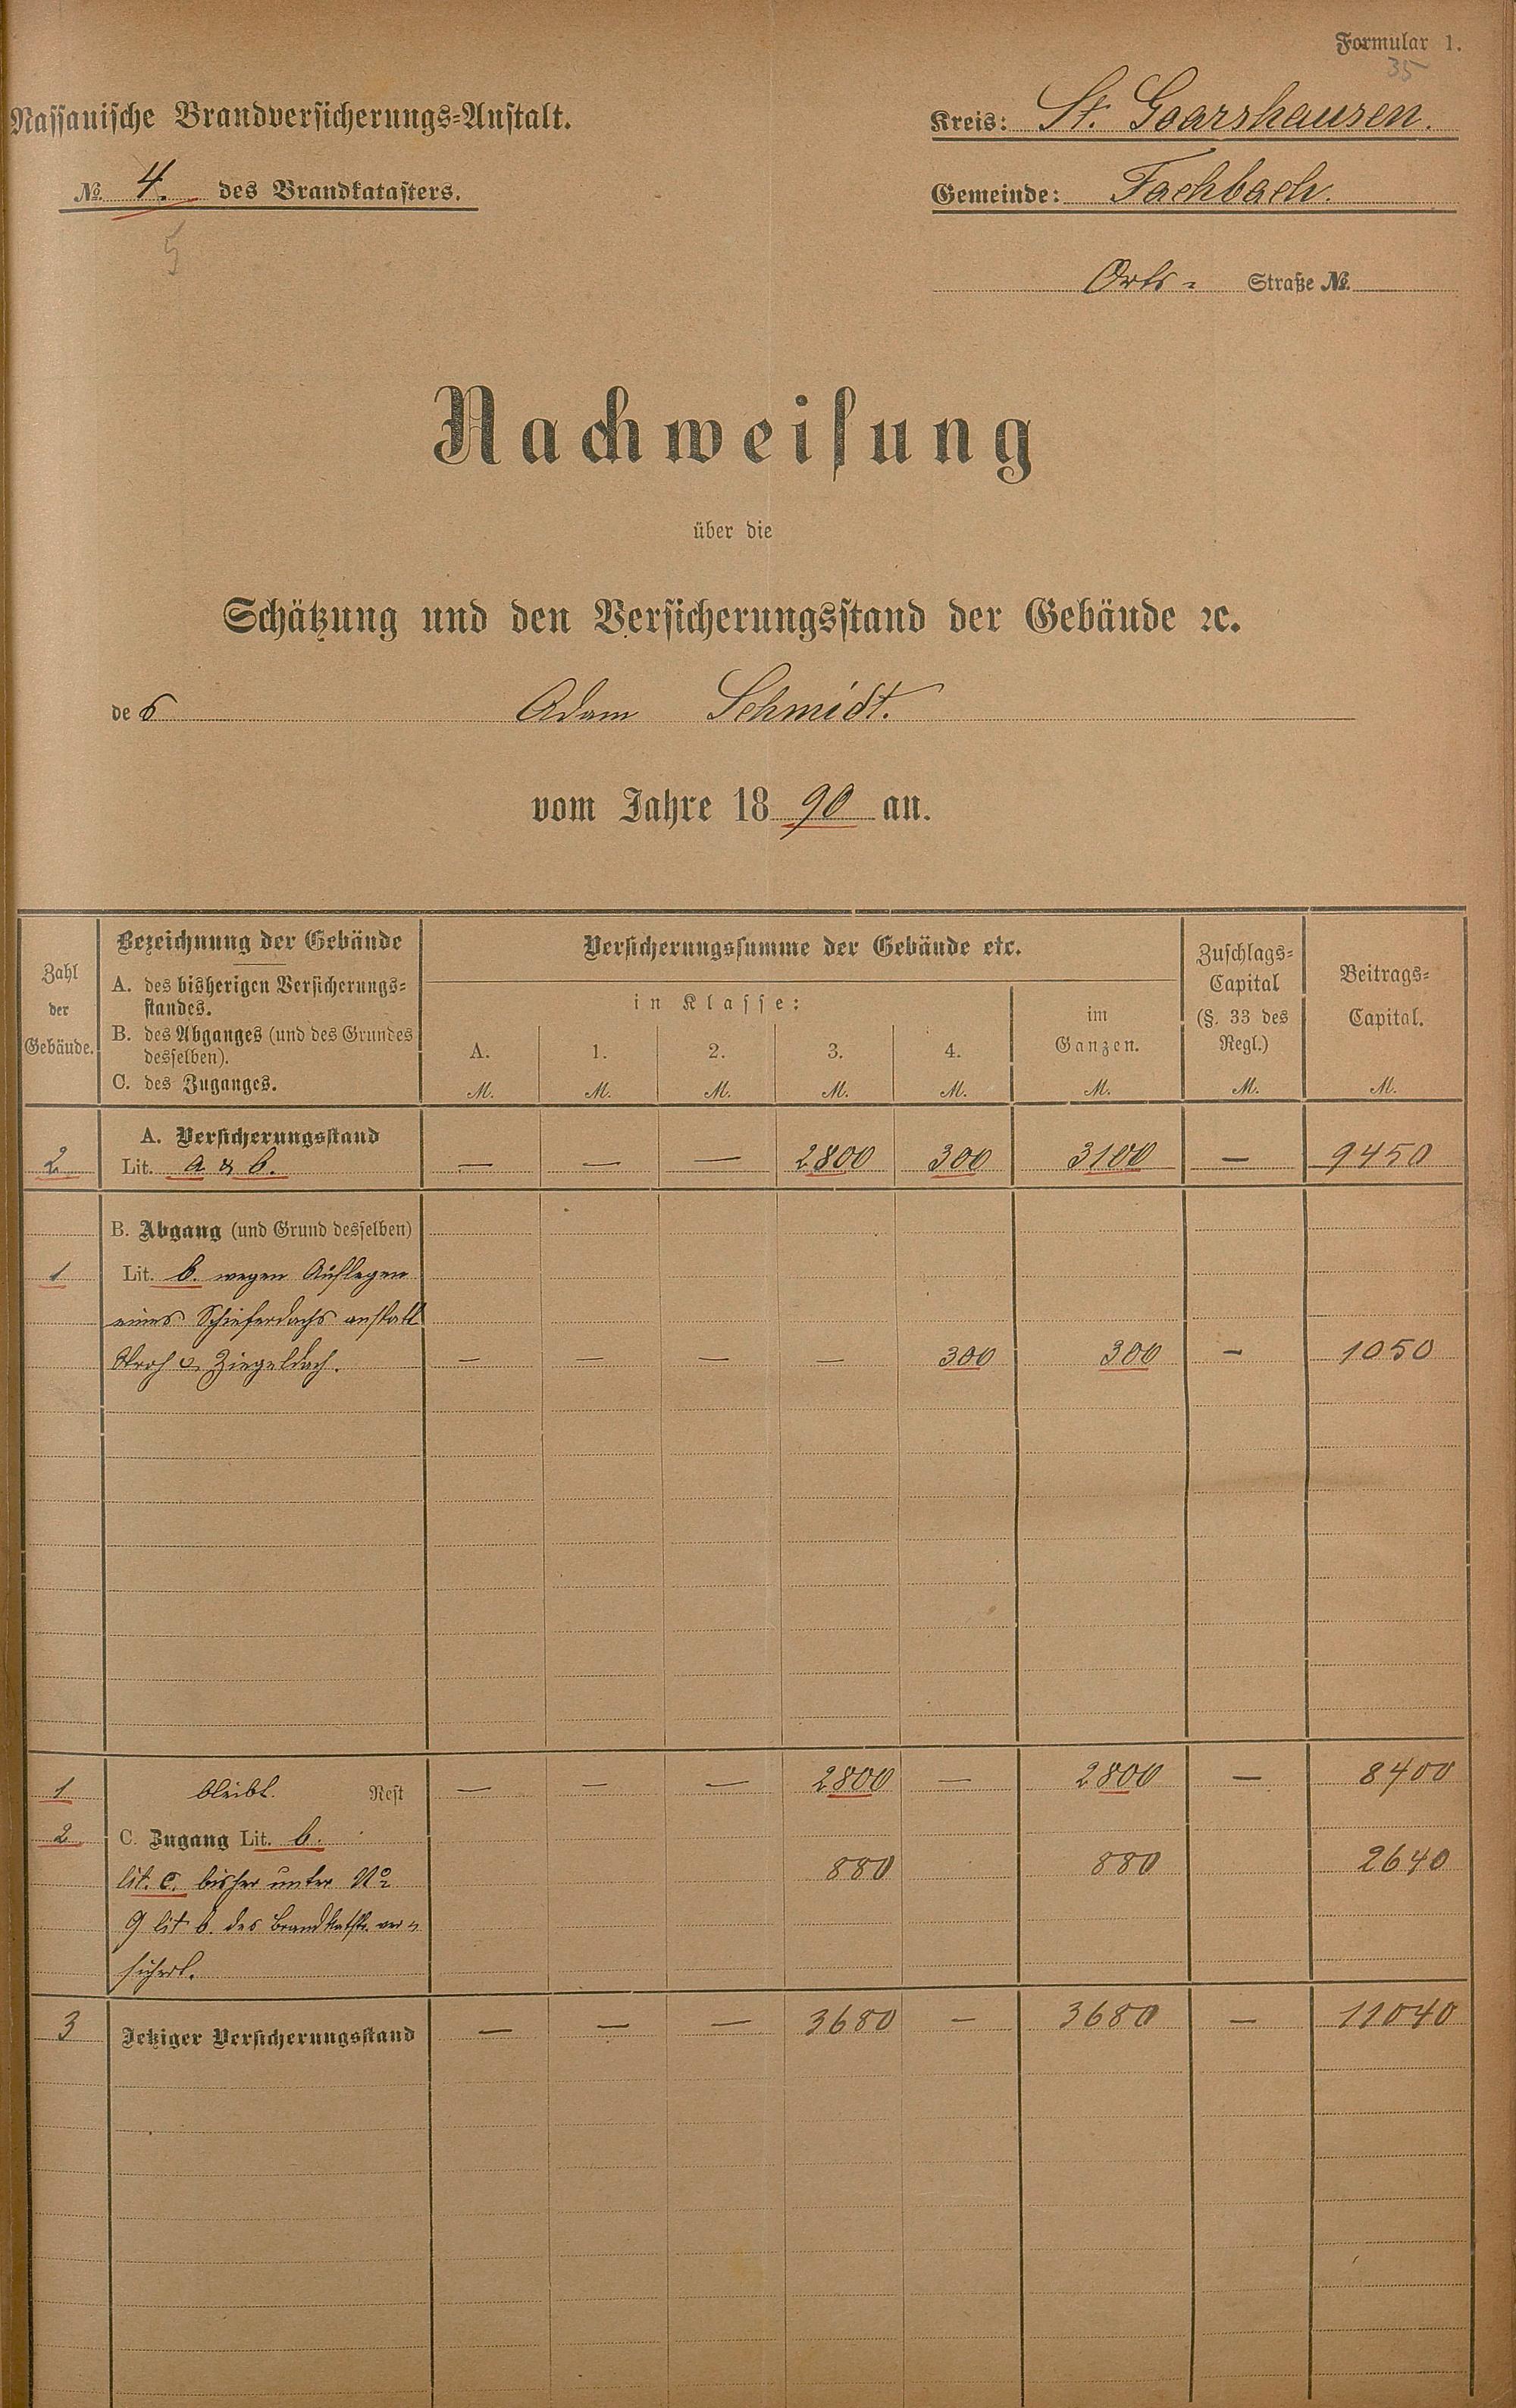 Formular 1.
35
Nassauische Brandversicherungs-Anstalt.
Kreis: St. Goarshausen.
No. 4. des Brandkatasters.
Gemeinde: Fachbach.
5
Orts- Straße No.
Nachweisung
über die
Schätzung und den Versicherungsstand der Gebäude ꝛc.
des Adam Schmidt.
vom Jahre 1890 an.
Zahl der Gebäude.
Bezeichnung der Gebäude
A. des bisherigen Versicherungs-
standes.
B. des Abganges (und des Grundes
desselben).
C. des Zuganges.
Versicherungssumme der Gebäude etc.
in Klasse:
A. 1. 2. 3. 4.
M. M. M. M. M.
im
Ganzen.
M.
Zuschlags-
Capital
(§. 33 des
Regl.)
M.
Beitrags-
Capital.
M.
A. Versicherungsstand
2 Lit. a & b. — — — 2800 300 3100 — 9450
B. Abgang (und Grund desselben)
1 Lit. b. wegen Auflegen
eines Schieferdachs anstatt
Stroh u. Ziegeldach. — — — — 300 300 — 1050
1 bleibt. Rest — — — 2800 — 2800 — 8400
2 C. Zugang Lit. b.
lit. c. bisher unter No 880 880 2640
9 lit b. des Brandkatstr. ver-
sichert.
3 Jetziger Versicherungsstand — — — 3680 — 3680 — 11040